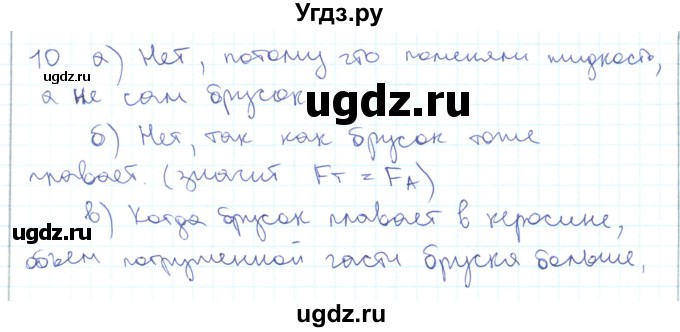 Угдз.ру
10 а) Нет, потому что поменяли жидкость,
ugdz.ru
а не сам брусок
ugdz.ru
б) Нет, так как брусок тоже
плавает. (значит Fт = FА)
ugdz.ru
в) Когда брусок плавает в керосине,
ugdz.ru
объем погруженной части бруска больше,
ugdz.ru